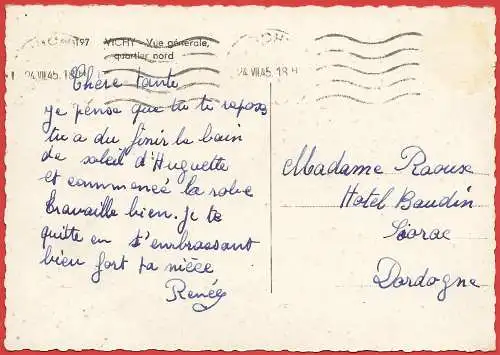 97 VICHY - Vue générale,
quartier nord
24 VII 45. 18 H
24 VII 45. 18 H
Chère tante
je pense que tu te reposes
tu a du finir le bain
de soleil d'Huguette
et commencé la robe
travaille bien. je te
quitte en t'embrassant
bien fort ta nièce
Renée
Madame Raoux
Hotel Baudin
Siorac
Dordogne